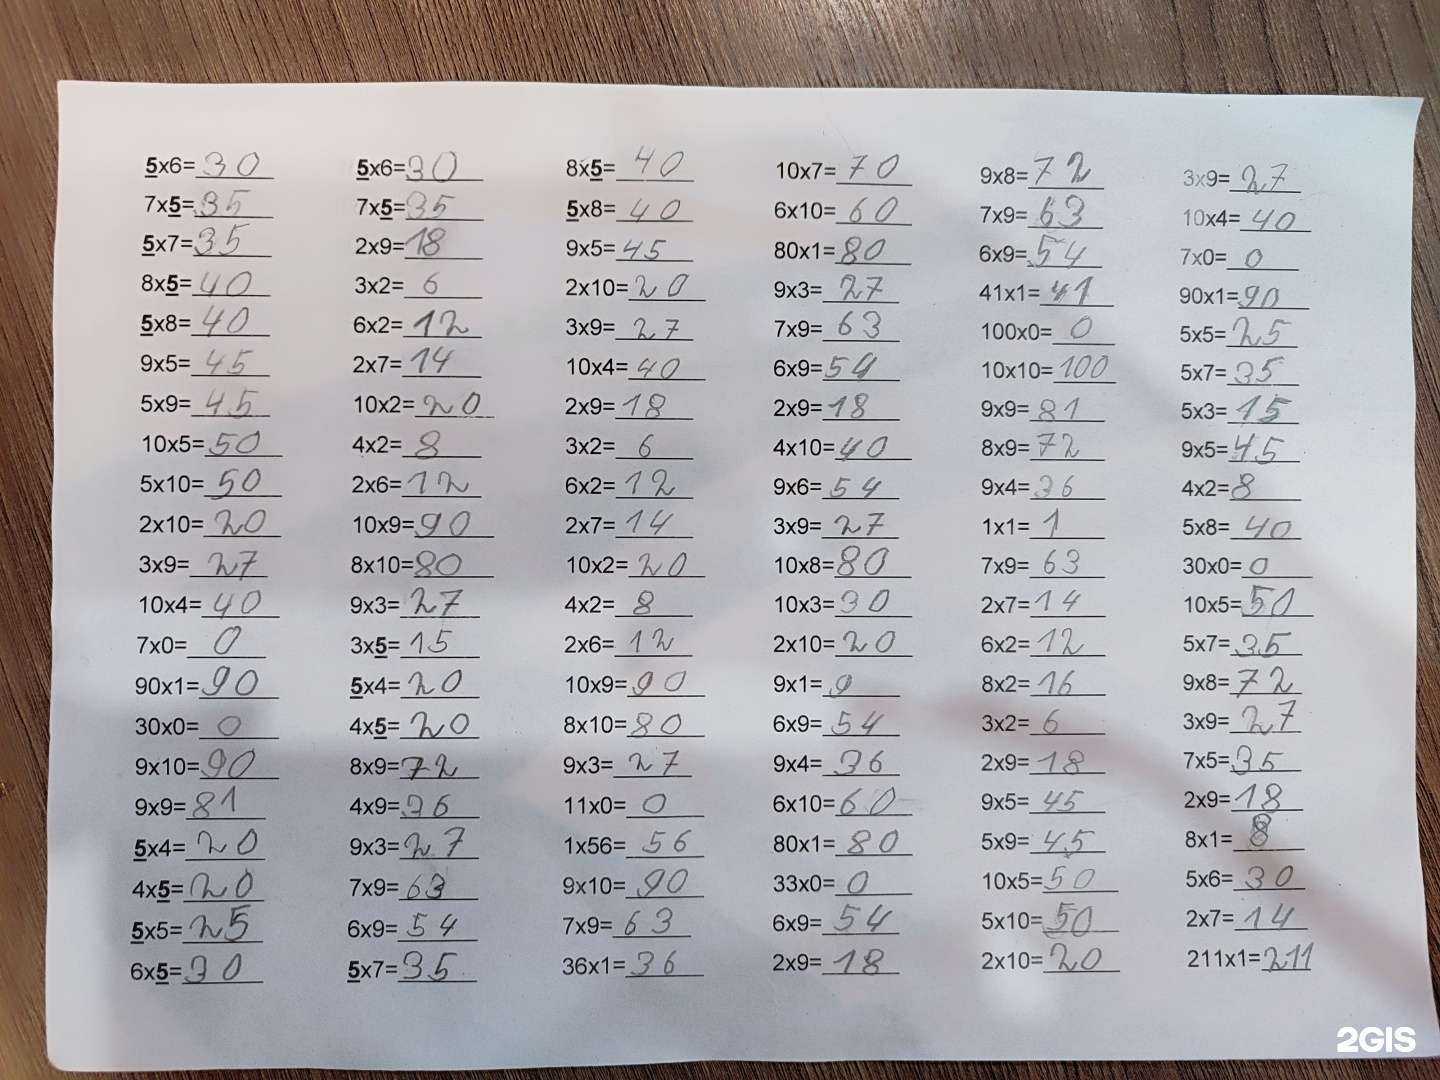 5x6=30 5x6=30 8x5=40 10x7=70 9x8=72 3x9=27
7x5=35 7x5=35 5x8=40 6x10=60 7x9=63 10x4=40
5x7=35 2x9=18 9x5=45 80x1=80 6x9=54 7x0=0
8x5=40 3x2=6 2x10=20 9x3=27 41x1=41 90x1=90
5x8=40 6x2=12 3x9=27 7x9=63 100x0=0 5x5=25
9x5=45 2x7=14 10x4=40 6x9=54 10x10=100 5x7=35
5x9=45 10x2=20 2x9=18 2x9=18 9x9=81 5x3=15
10x5=50 4x2=8 3x2=6 4x10=40 8x9=72 9x5=45
5x10=50 2x6=12 6x2=12 9x6=54 9x4=36 4x2=8
2x10=20 10x9=90 2x7=14 3x9=27 1x1=1 5x8=40
3x9=27 8x10=80 10x2=20 10x8=80 7x9=63 30x0=0
10x4=40 9x3=27 4x2=8 10x3=30 2x7=14 10x5=50
7x0=0 3x5=15 2x6=12 2x10=20 6x2=12 5x7=35
90x1=90 5x4=20 10x9=90 9x1=9 8x2=16 9x8=72
30x0=0 4x5=20 8x10=80 6x9=54 3x2=6 3x9=27
9x10=90 8x9=72 9x3=27 9x4=36 2x9=18 7x5=35
9x9=81 4x9=36 11x0=0 6x10=60 9x5=45 2x9=18
5x4=20 9x3=27 1x56=56 80x1=80 5x9=45 8x1=8
4x5=20 7x9=63 9x10=90 33x0=0 10x5=50 5x6=30
5x5=25 6x9=54 7x9=63 6x9=54 5x10=50 2x7=14
6x5=30 5x7=35 36x1=36 2x9=18 2x10=20 211x1=211
2GIS